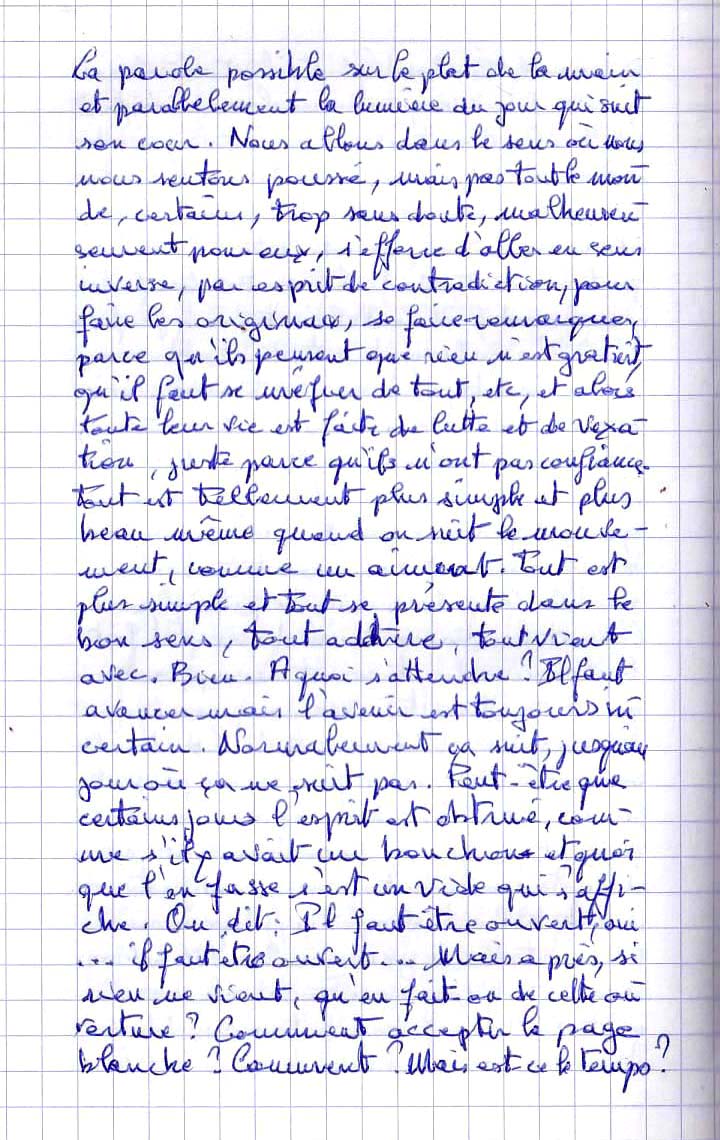 La parole possible sur le plat de la main
et parallelement la lumière du jour qui suit
son cour. Nous allons dans le sens où nous
nous sentons poussé, mais pas tout le mon
de, certains, trop sans doute, malheureu
sement pour eux, s'efforce d'aller en sens
inverse, par esprit de contradiction, pour
faire les originaux, se faire remarquer,
parce qu'ils pensent que rien n'est gratuit,
qu'il faut se méfier de tout, etc, et alors
toute leur vie est faite de lutte et de vexa-
tion, juste parce qu'ils n'ont pas confiance.
Tout est tellement plus simple et plus
beau même quand on suit le mouve-
ment, comme un aimant. Tout est
plus simple et tout se présente dans le
bon sens, tout adhère, tout vient
avec. Bien. A quoi s'attendre ? Il faut
avancer mais l'avenir est toujours in
certain. Normalement ça suit, jusqu'au
jour où ça ne suit pas. Peut-être que
certains jours l'esprit est obstrué, com-
me s'il y avait un bouchon et quoi
que l'on fasse c'est un vide qui s'affi-
che. On dit : Il faut être ouvert, oui
... il faut être ouvert... Mais après, si
rien ne vient, qu'en fait-on de cette ou
verture ? Comment accepter la page
blanche ? Comment ? Mais est-ce le temps ?